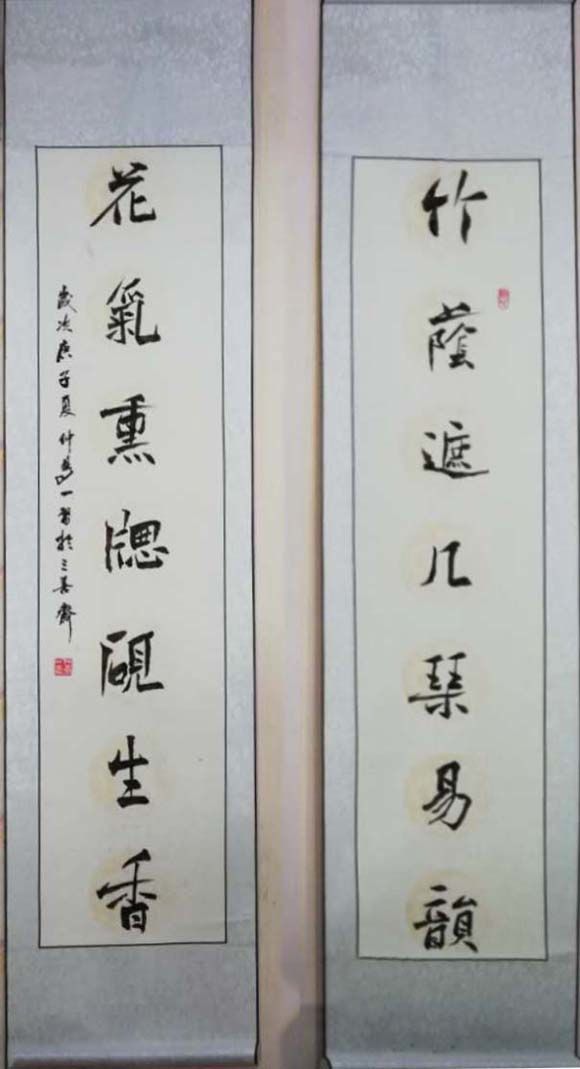 竹蔭遮几琴易韻
花氣熏牕硯生香
歲次庚子夏仲 一書於三善齋